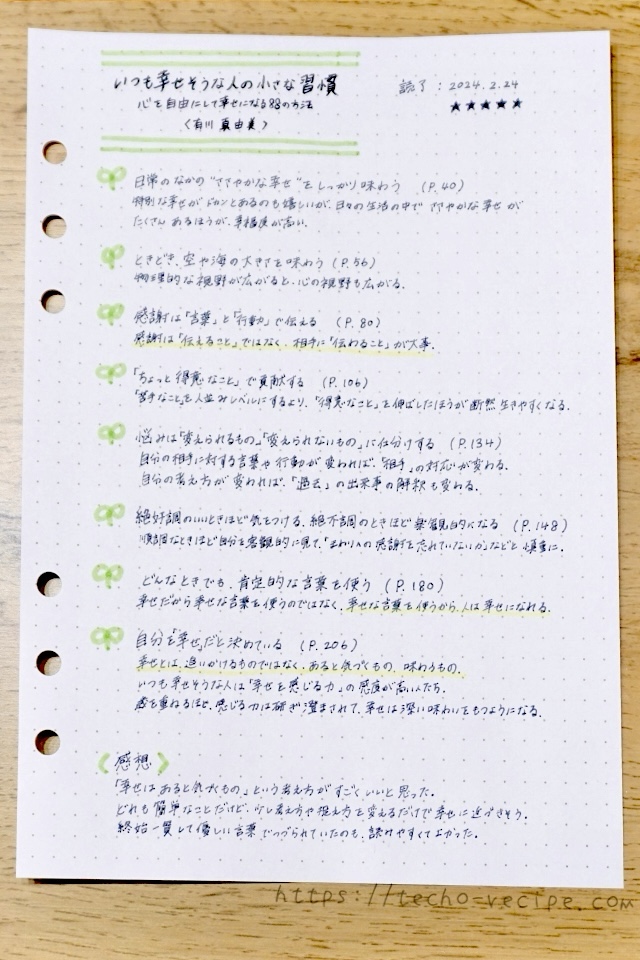 いつも幸せそうな人の小さな習慣
心を自由にして幸せになる88の方法
〈有川 真由美〉
読了：2024.2.24
★★★★★
日常のなかの"ささやかな幸せ"をしっかり味わう (P.40)
特別な幸せがドカンとあるのも嬉しいが、日々の生活の中でささやかな幸せが
たくさんあるほうが、幸福度が高い。
ときどき、空や海の大きさを味わう (P.56)
物理的な視野が広がると、心の視野も広がる。
感謝は「言葉」と「行動」で伝える (P.80)
感謝は「伝えること」ではなく、相手に「伝わること」が大事。
「ちょっと得意なこと」で貢献する (P.106)
「苦手なこと」を人並みレベルにするより、「得意なこと」を伸ばしたほうが断然生きやすくなる。
悩みは「変えられるもの」「変えられないもの」に仕分けする (P.134)
自分の相手に対する言葉や行動が変われば、「相手」の対応が変わる。
自分の考え方が変われば、「過去」の出来事の解釈も変わる。
絶好調のいいときほど気をつける、絶不調のときほど楽観的になる (P.148)
順調なときほど自分を客観的に見て、「まわりへの感謝を忘れていないか」などと慎重に。
どんなときでも、肯定的な言葉を使う (P.180)
幸せだから幸せな言葉を使うのではなく、幸せな言葉を使うから、人は幸せになれる。
自分を「幸せ」だと決めている (P.206)
幸せとは、追いかけるものではなく、あると気づくもの、味わうもの。
いつも幸せそうな人は「幸せを感じる力」の感度が高い人たち。
を重ねるほど、感じる力は研ぎ澄まされて、幸せは深い味わいをもつようになる。
〈感想〉
「幸せはあると気づくもの」という考え方がすごくいいと思った。
どれも簡単なことだけど、少し考え方や捉え方を変えるだけで幸せに近づきそう。
終始一貫して優しい言葉でつづられていたのも、読みやすくてよかった。
https://techo-recipe.com